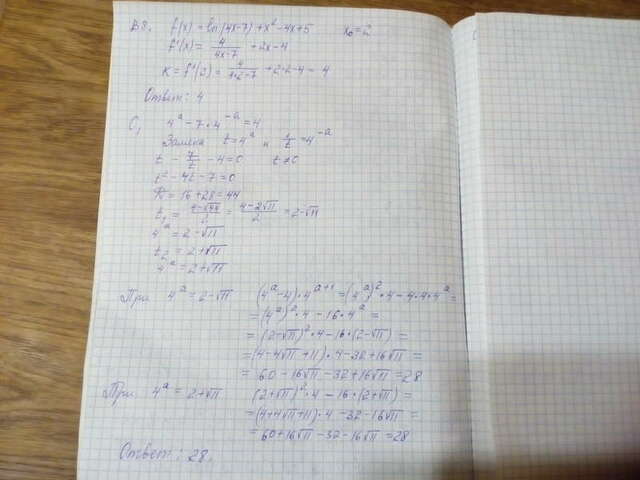 В8. f(x) = ln(4x-7) + x² - 4x + 5 x₀ = 2
f'(x) = 4/(4x-7) + 2x - 4
K = f'(2) = 4/(4·2-7) + 2·2 - 4 = 4
Ответ: 4
C₁ 4^a - 7·4^(-a) = 4
Замена t = 4^a и 1/t = 4^(-a)
t - 7/t - 4 = 0 t ≠ 0
t² - 4t - 7 = 0
D = 16 + 28 = 44
t₁ = (4-√44)/2 = (4-2√11)/2 = 2-√11
4^a = 2-√11
t₂ = 2+√11
4^a = 2+√11
При 4^a = 2-√11 (4^a - 4)·4^(a+1) = (4^a)²·4 - 4·4·4^a =
= (4^a)²·4 - 16·4^a =
= (2-√11)²·4 - 16·(2-√11) =
= (4-4√11+11)·4 - 32 + 16√11 =
= 60 - 16√11 - 32 + 16√11 = 28
При 4^a = 2+√11 (2+√11)²·4 - 16·(2+√11) =
= (4+4√11+11)·4 - 32 - 16√11 =
= 60 + 16√11 - 32 - 16√11 = 28
Ответ: 28.